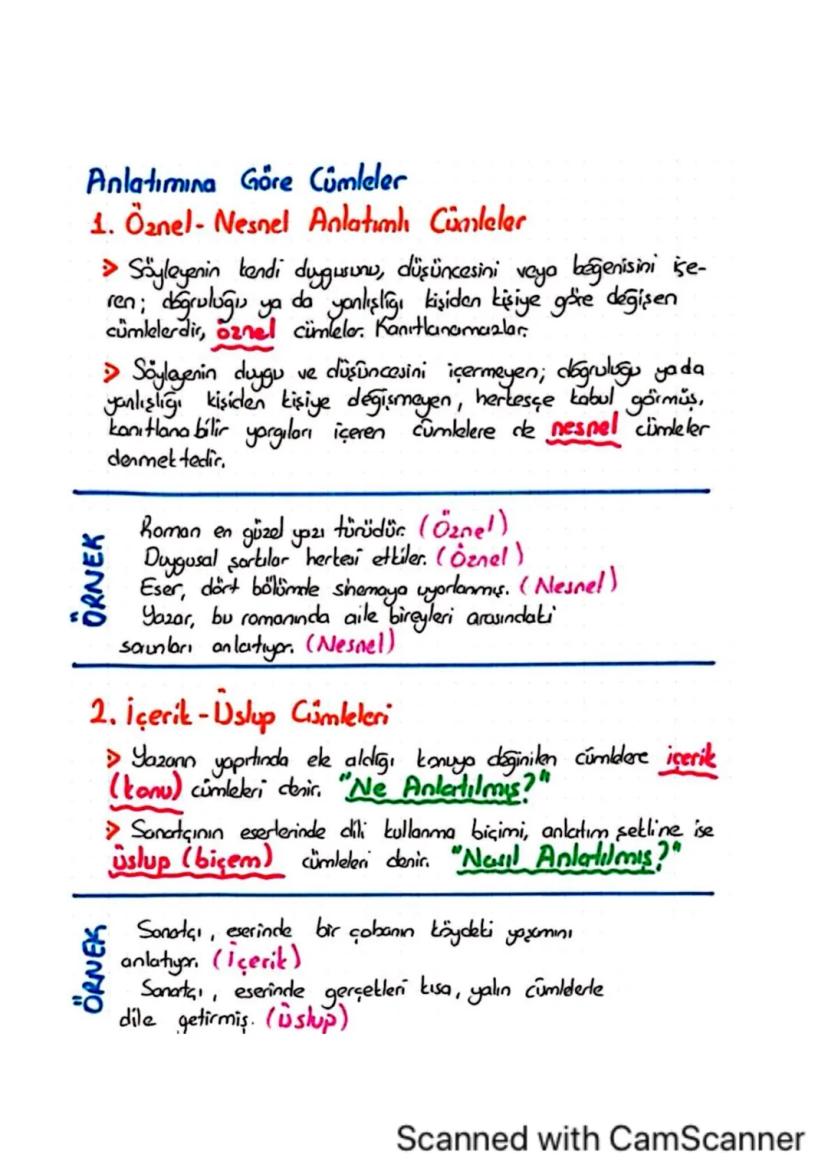 Anlatımına Göre Cümleler
1. Öznel - Nesnel Anlatımlı Cümleler
> Söyleyenin kendi duygusunu, düşüncesini veya beğenisini içe-
ren; doğruluğu ya da yanlışlığı kişiden kişiye göre değişen
cümlelerdir, öznel cümleler. Kanıtlanamazlar.
> Söyleyenin duygu ve düşüncesini içermeyen; doğruluğu ya da
yanlışlığı kişiden kişiye değişmeyen, herkesçe kabul görmüş,
kanıtlanabilir yargıları içeren cümlelere de nesnel cümleler
denmektedir.
ÖRNEK
Roman en güzel yazı türüdür. (Öznel)
Duygusal şarkılar herkesi etkiler. (Öznel)
Eser, dört bölümde sinemaya uyarlanmış. (Nesnel)
Yazar, bu romanında aile bireyleri arasındaki
sorunları anlatıyor. (Nesnel)
2. İçerik - Üslup Cümleleri
> Yazarın yapıtında ele aldığı konuya değinilen cümlelere içerik
(konu) cümleleri denir. "Ne Anlatılmış?"
> Sanatçının eserlerinde dili kullanma biçimi, anlatım şekline ise
üslup (biçem) cümleleri denir. "Nasıl Anlatılmış?"
ÖRNEK
Sanatçı, eserinde bir çobanın köydeki yaşamını
anlatıyor. (İçerik)
Sanatçı, eserinde gerçekleri kısa, yalın cümlelerle
dile getirmiş. (Üslup)
Scanned with CamScanner